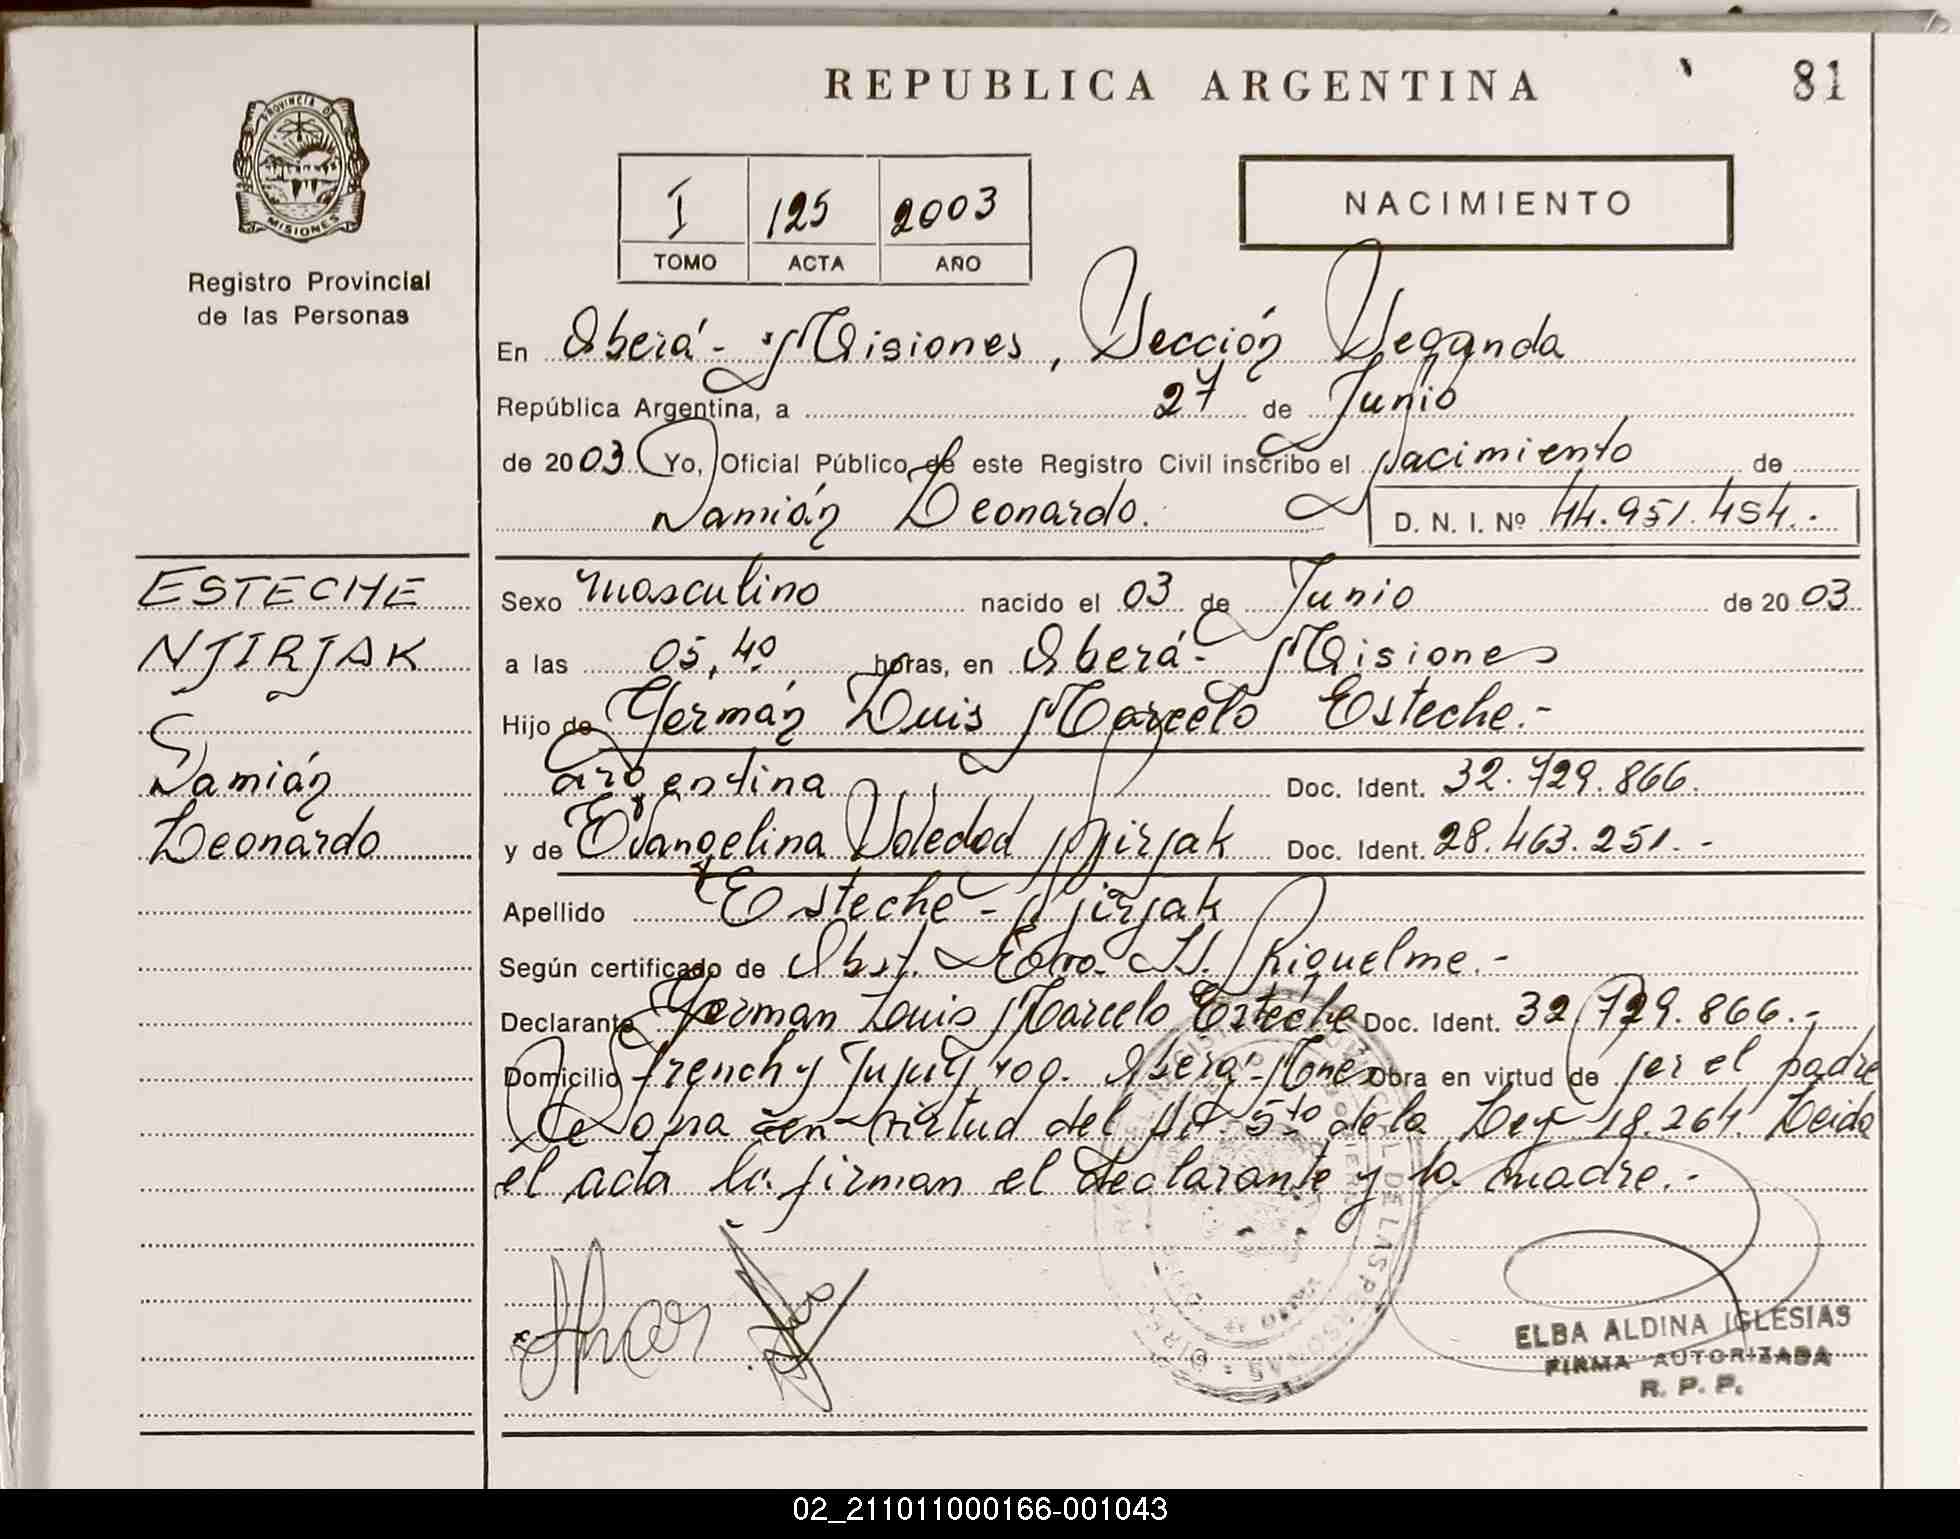 REPUBLICA ARGENTINA
81
PROVINCIA DE
MISIONES
Registro Provincial
de las Personas
I 125 2003
TOMO ACTA AÑO
NACIMIENTO
En Oberá - Misiones, Sección Segunda
República Argentina, a 27 de Junio
de 2003 Yo, Oficial Público de este Registro Civil inscribo el Nacimiento de
Damián Leonardo. D. N. I. Nº 44.951.454.-
ESTECHE
NJIRJAK
Damián
Leonardo
Sexo masculino nacido el 03 de Junio de 2003
a las 05,40 horas, en Oberá - Misiones
Hijo de Germán Luis Marcelo Esteche.-
argentina Doc. Ident. 32.729.866.
y de Evangelina Soledad Njirjak Doc. Ident. 28.463.251.-
Apellido Esteche - Njirjak
Según certificado de Obst. H. Riquelme.-
Declarante German Luis Marcelo Esteche Doc. Ident. 32.729.866.-
Domicilio French y Jujuy Oberá - Mnes Obra en virtud de ser el padre
Se obra en virtud del Art. 5to de la Ley 18.264. Leida
el acta la firman el declarante y la madre.-
ELBA ALDINA IGLESIAS
FIRMA AUTORIZADA
R. P. P.
02_211011000166-001043